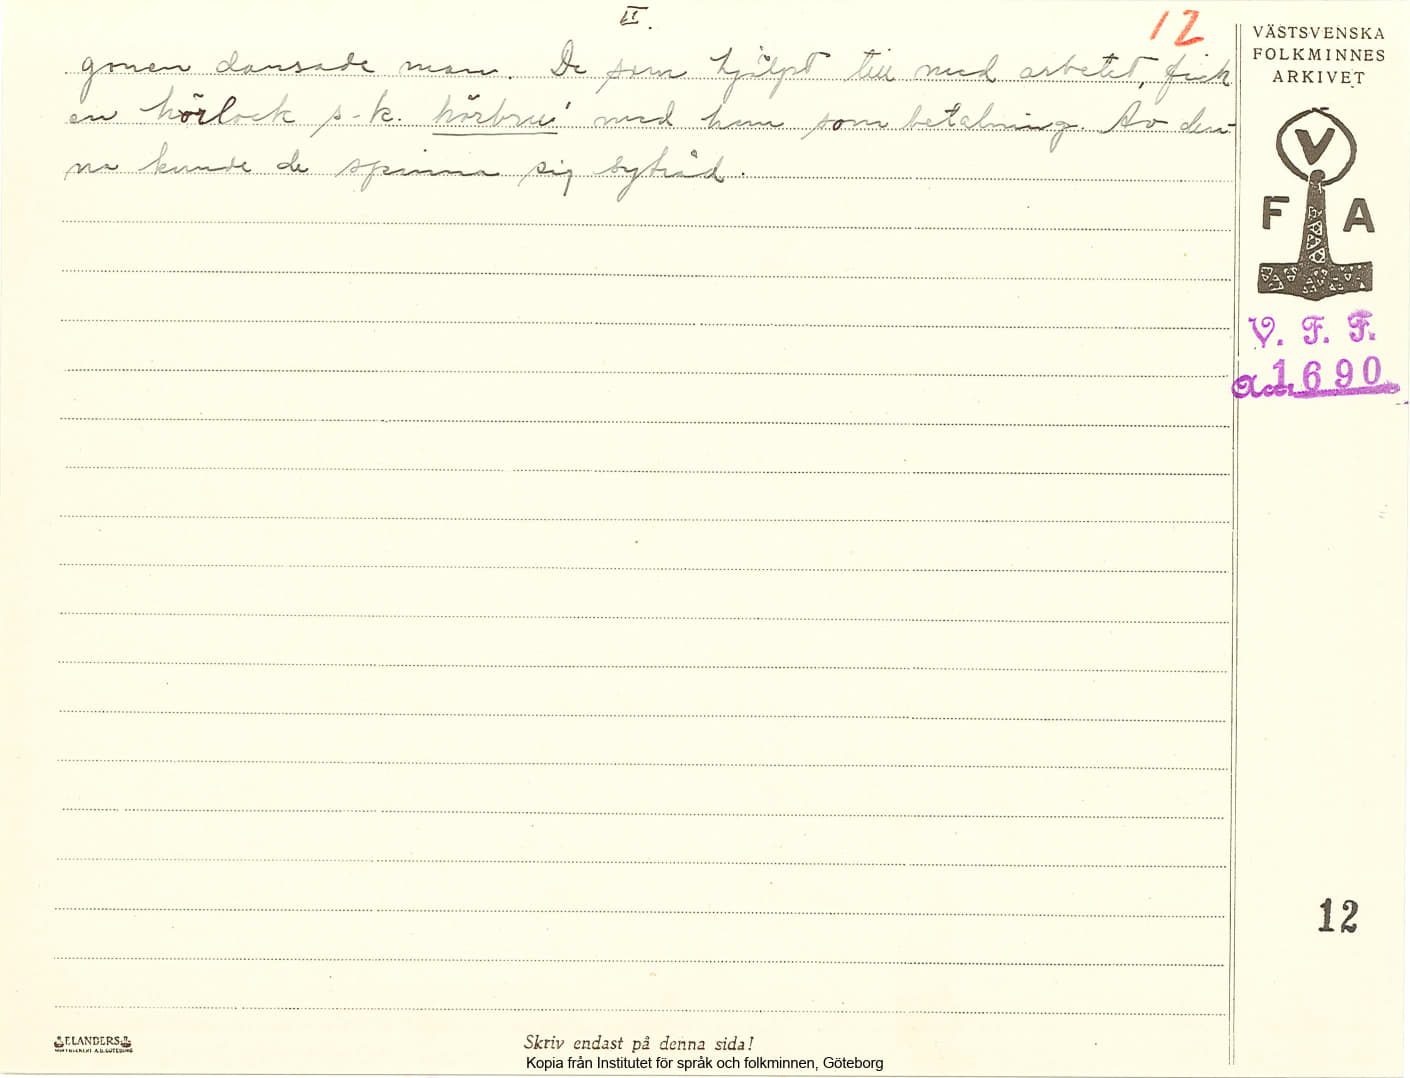 II.
12
gonen dansade man. De som hjälpt till med arbetet, fick
en hörlock s-k. hörbru' med hem som betalning. Av den-
na kunde de spinna sig sytråd.
VÄSTSVENSKA
FOLKMINNES
ARKIVET
V
F A
V. F. F.
1690
12
ELANDERS
GÖTEBORG
Skriv endast på denna sida!
Kopia från Institutet för språk och folkminnen, Göteborg